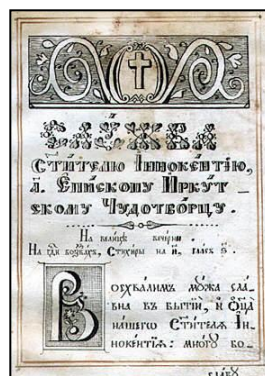 СЛУЖБА
Ст҃и́телю Інноке́нтїю,
а҃. Епи́скопу Иркут_
скому Чудотво́рцу.
На вели́цѣй вече́рни.
На гдⷭ҇и воззва́хъ, Стїхи́ры на и҃,
Восхвалимъ мꙋ́жа сла́_
вна въ бытїи́, и
на́шего Ст҃и́телѧ Ін_
ноке́нтїѧ: мно́гꙋ бо_
сла́вꙋ